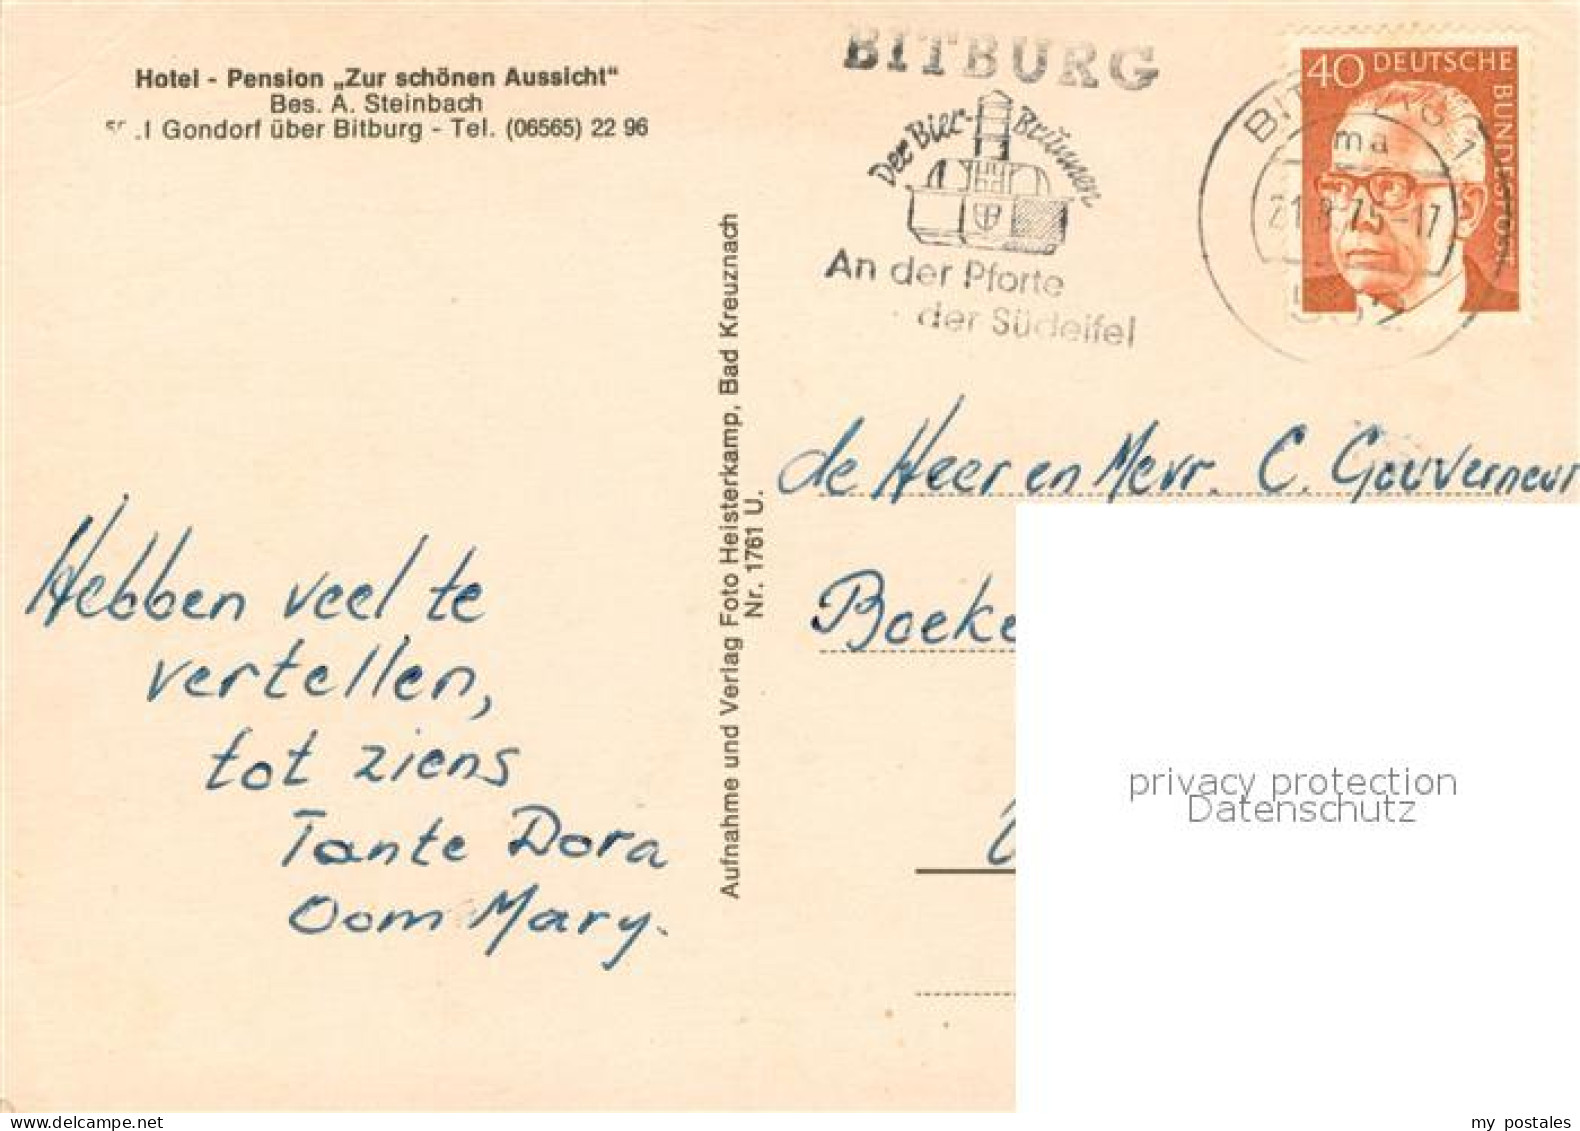 Hotel - Pension „Zur schönen Aussicht“
Bes. A. Steinbach
Gondorf über Bitburg - Tel. (06565) 22 96
BITBURG
Der Bier-Brunnen
An der Pforte
der Südeifel
40 DEUTSCHE
BUNDESPOST
BITBURG 1
ma
21.8.75-17
552
Aufnahme und Verlag Foto Heisterkamp, Bad Kreuznach
Nr. 1761 U.
de Heer en Mevr. C. Gouverneur
Boeke
Hebben veel te
vertellen,
tot ziens
Tante Dora
Oom Mary.
privacy protection
Datenschutz
my postales